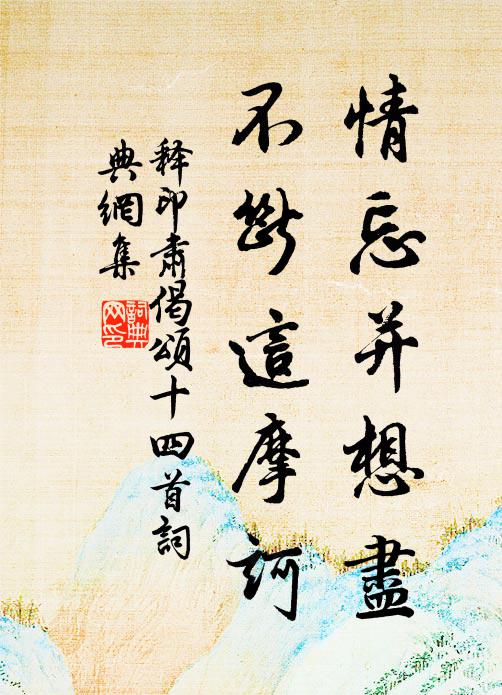 情忘并想盡
不斷這摩訶
釋印肅偈頌十四首詞
典網集
詞典網印